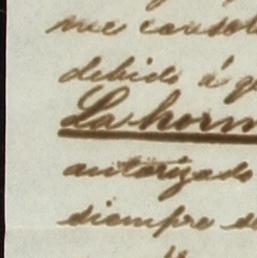 me consol
debido á q
La horm
autorizado
siempre d